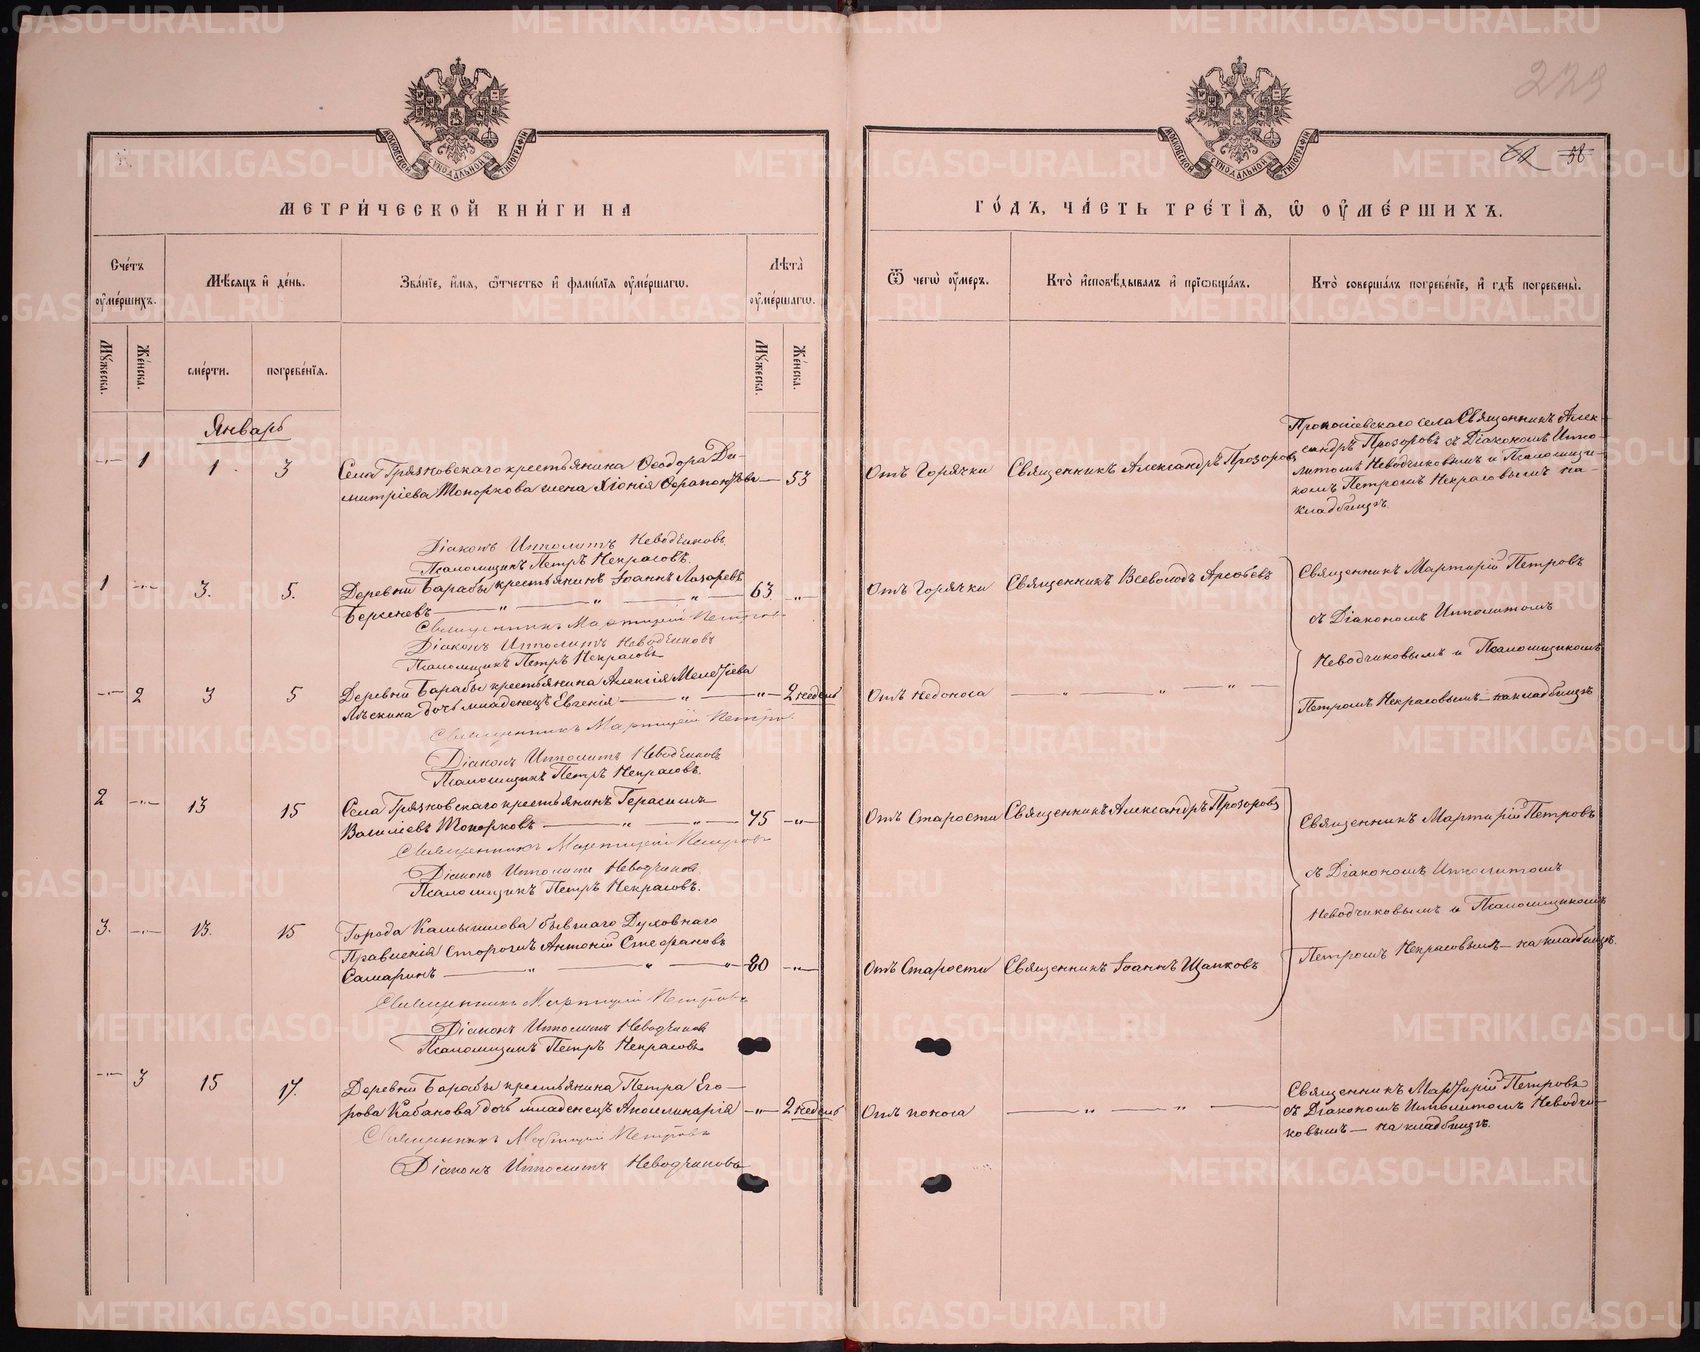 229
60 58
МОСКОВСКОЙ СѴНОДАЛЬНОЙ ТИПОГРАФІИ
МОСКОВСКОЙ СѴНОДАЛЬНОЙ ТИПОГРАФІИ
МЕТРИ́ЧЕСКОЙ КНИ́ГИ НА
ГО́ДЪ, ЧА́СТЬ ТРЕ́ТІѦ, Ѡ҆ ОУ҆МЕ́РШИХЪ.
Сче́тъ оу҆ме́ршихъ.
Мѣ́сѧцъ и҆ де́нь.
Зва́нїе, и҆́мѧ, ѻ҆́тчество и҆ фами́лїѧ оу҆ме́ршагѡ.
Лѣта̀ оу҆ме́ршагѡ.
Ѿ чегѡ̀ оу҆́меръ.
Кто̀ и҆сповѣ́дывалъ и҆ прїѡбща́лъ.
Кто̀ соверша́лъ погребе́нїе, и҆ гдѣ̀ погребены̀.
Мꙋ́жеска.
Же́нска.
сме́рти.
погребе́нїѧ.
Мꙋ́жеска.
Же́нска.
Январь
1 1 3
Села Грязновскаго крестьянина Ѳеодора Ди-
митріева Топоркова жена Хіонія Ѳерапонтова 53
Отъ Горячки
Священникъ Александръ Прозоровъ
села Священникъ Алек-
сандръ Прозоровъ съ Діакономъ Иппо-
литомъ Неводчиковымъ и Псаломщи-
комъ Петромъ Некрасовымъ на
кладбищѣ.
Діаконъ Ипполитъ Неводчиковъ
Псаломщикъ Петръ Некрасовъ.
1 3. 5.
Деревни Барабы крестьянинъ Іоаннъ Лазаревъ 63
Берсеневъ
Отъ Горячки
Священникъ Всеволодъ
Священникъ Мартирій Петровъ
съ Діакономъ Ипполитомъ
Неводчиковымъ и Псаломщикомъ
Петромъ Некрасовымъ на кладбищѣ
Священникъ Мартирій Петровъ
Діаконъ Ипполитъ Неводчиковъ
Псаломщикъ Петръ Некрасовъ
2 3 5
Деревни Барабы крестьянина Алексія Мелетіева
дочь младенецъ Евгенія 2 недѣль
Отъ недоноса
Священникъ Мартирій Петровъ
Діаконъ Ипполитъ Неводчиковъ
Псаломщикъ Петръ Некрасовъ.
2 13 15
Села Грязновскаго крестьянинъ Герасимъ
Васильевъ Топорковъ 75
Отъ Старости
Священникъ Александръ Прозоровъ
Священникъ Мартирій Петровъ
съ Діакономъ Ипполитомъ
Неводчиковымъ и Псаломщикомъ
Петромъ Некрасовымъ на кладбищѣ.
Священникъ Мартирій Петровъ
Діаконъ Ипполитъ Неводчиковъ
Псаломщикъ Петръ Некрасовъ.
3. 13. 15
Города Камышлова бывшаго Духовнаго
Правленія Сторожъ Антоній Стефановъ
Самаринъ 80
Отъ Старости
Священникъ Іоаннъ Щапковъ
Священникъ Мартирій Петровъ
Діаконъ Ипполитъ Неводчиковъ
Псаломщикъ Петръ Некрасовъ
3 15 17.
Деревни Барабы крестьянина Петра Его-
рова Кабанова дочь младенецъ Аполлинарія 2 недѣль
Отъ поноса
Священникъ Мартирій Петровъ
съ Діакономъ Ипполитомъ Неводчи-
ковымъ на кладбищѣ.
Священникъ Мартирій Петровъ
Діаконъ Ипполитъ Неводчиковъ
METRIKI.GASO-URAL.RU